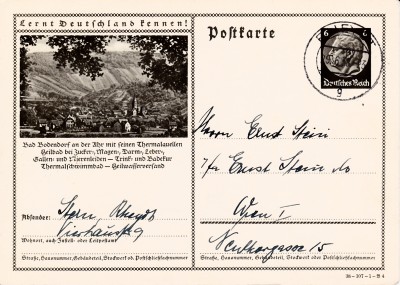 Lernt Deutschland kennen!
Bad Bodendorf an der Ahr mit seinen Thermalquellen
Heilbad bei Zucker-, Magen-, Darm-, Leber-,
Gallen- und Nierenleiden — Trink- und Badekur
Thermalschwimmbad — Heilwasserversand
Absender: Stern, Rheydt
Wohnort, auch Zustell- oder Leitpostamt
Straße, Hausnummer, Gebäudeteil, Stockwerk oder Postschließfachnummer
Postkarte
6 6
Deutsches Reich
g
Herrn Ernst Stein
Ernst Stein
Wien I
15
Straße, Hausnummer, Gebäudeteil, Stockwerk oder Postschließfachnummer